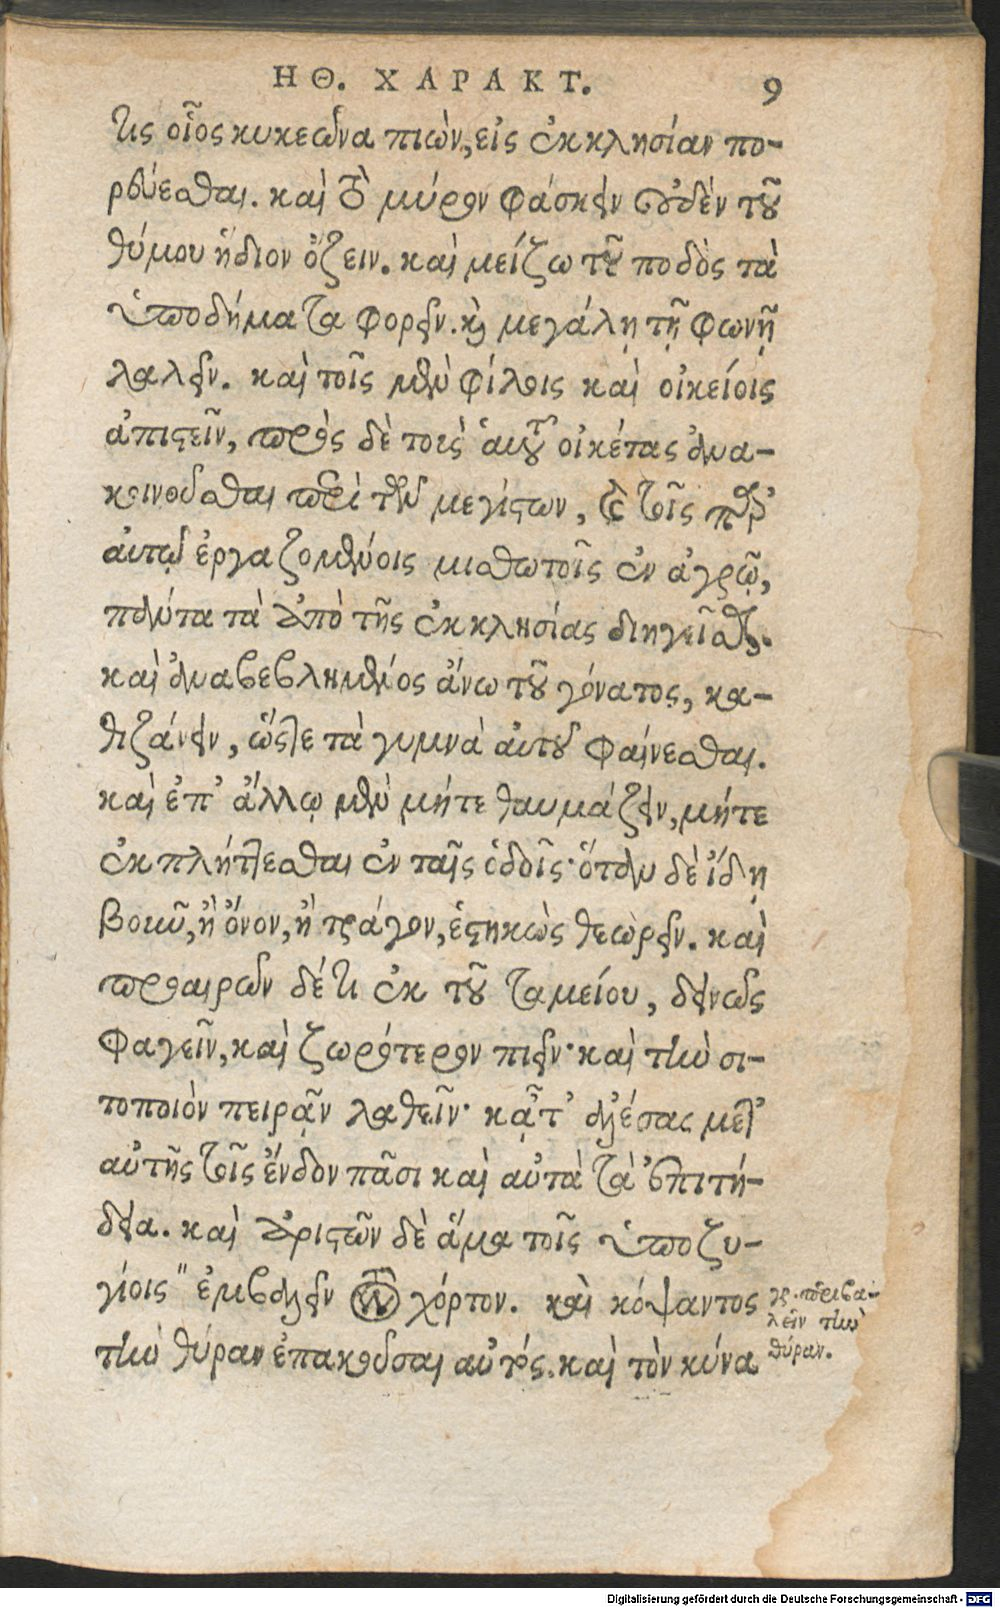 ΗΘ. ΧΑΡΑΚΤ. 9
τις οἷος κυκεῶνα πιὼν, εἰς ἐκκλησίαν πο-
ρεύεσθαι. καὶ τὸ μύρον φάσκειν οὐδὲν τοῦ
θύμου ἥδιον ὄζειν. καὶ μείζω τοῦ ποδὸς τὰ
ὑποδήματα φορεῖν. καὶ μεγάλῃ τῇ φωνῇ
λαλεῖν. καὶ τοῖς μὲν φίλοις καὶ οἰκείοις
ἀπιστεῖν, πρὸς δὲ τοὺς αὑτοῦ οἰκέτας ἀνα-
κοινοῦσθαι περὶ τῶν μεγίστων, καὶ τοῖς παρ'
αὐτῷ ἐργαζομένοις μισθωτοῖς ἐν ἀγρῷ,
πάντα τὰ ἀπὸ τῆς ἐκκλησίας διηγεῖσθαι.
καὶ ἀναβεβλημένος ἄνω τοῦ γόνατος, κα-
θιζάνειν, ὥστε τὰ γυμνὰ αὐτοῦ φαίνεσθαι.
καὶ ἐπ' ἄλλῳ μὲν μήτε θαυμάζειν, μήτε
ἐκπλήττεσθαι ἐν ταῖς ὁδοῖς· ὅταν δὲ ἴδῃ
βοῦν, ἢ ὄνον, ἢ τράγον, ἑστηκὼς θεωρεῖν. καὶ
προαιρῶν δέ τι ἐκ τοῦ ταμείου, δεινῶς
φαγεῖν, καὶ ζωρότερον πιεῖν· καὶ τὴν σι-
τοποιὸν πειρᾷν λαθεῖν· κᾆτ' ἀλέσας μετ'
αὐτῆς τοῖς ἔνδον πᾶσι καὶ αὐτὰ τὰ ἐπιτή-
δεια. καὶ ἀριστῶν δὲ ἅμα τοῖς ὑποζυ-
γίοις " ἐμβαλεῖν τὸν χόρτον. καὶ κόψαντος
τὴν θύραν ἐπακοῦσαι αὐτός. καὶ τὸν κύνα
γρ. περιβα-
λεῖν τὴν
θύραν.
Digitalisierung gefördert durch die Deutsche Forschungsgemeinschaft - DFG